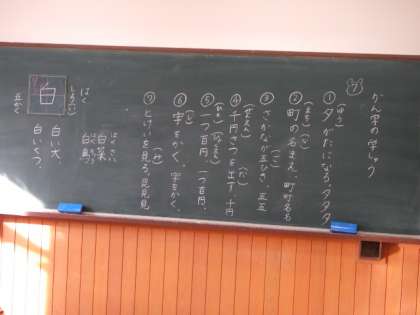 かん字の学しゅう
① 夕がたになる。夕夕夕
(ゆう)
② 町の名まえ。町町名名
(まち)(な)
③ さかなが五ひき。五五
(ご)
④ 千円さつを出す。千円
(せんえん)(だ)
⑤ 一つ百円。一つ百円。
(ひと)(ひゃくえん)
⑥ 字をかく。字をかく。
(じ)
⑦ とけいを見る。見見見
(み)
はく
しろい
白
五かく
はくさい
白菜
はくちょう
白鳥
白い犬。
白いくつ。